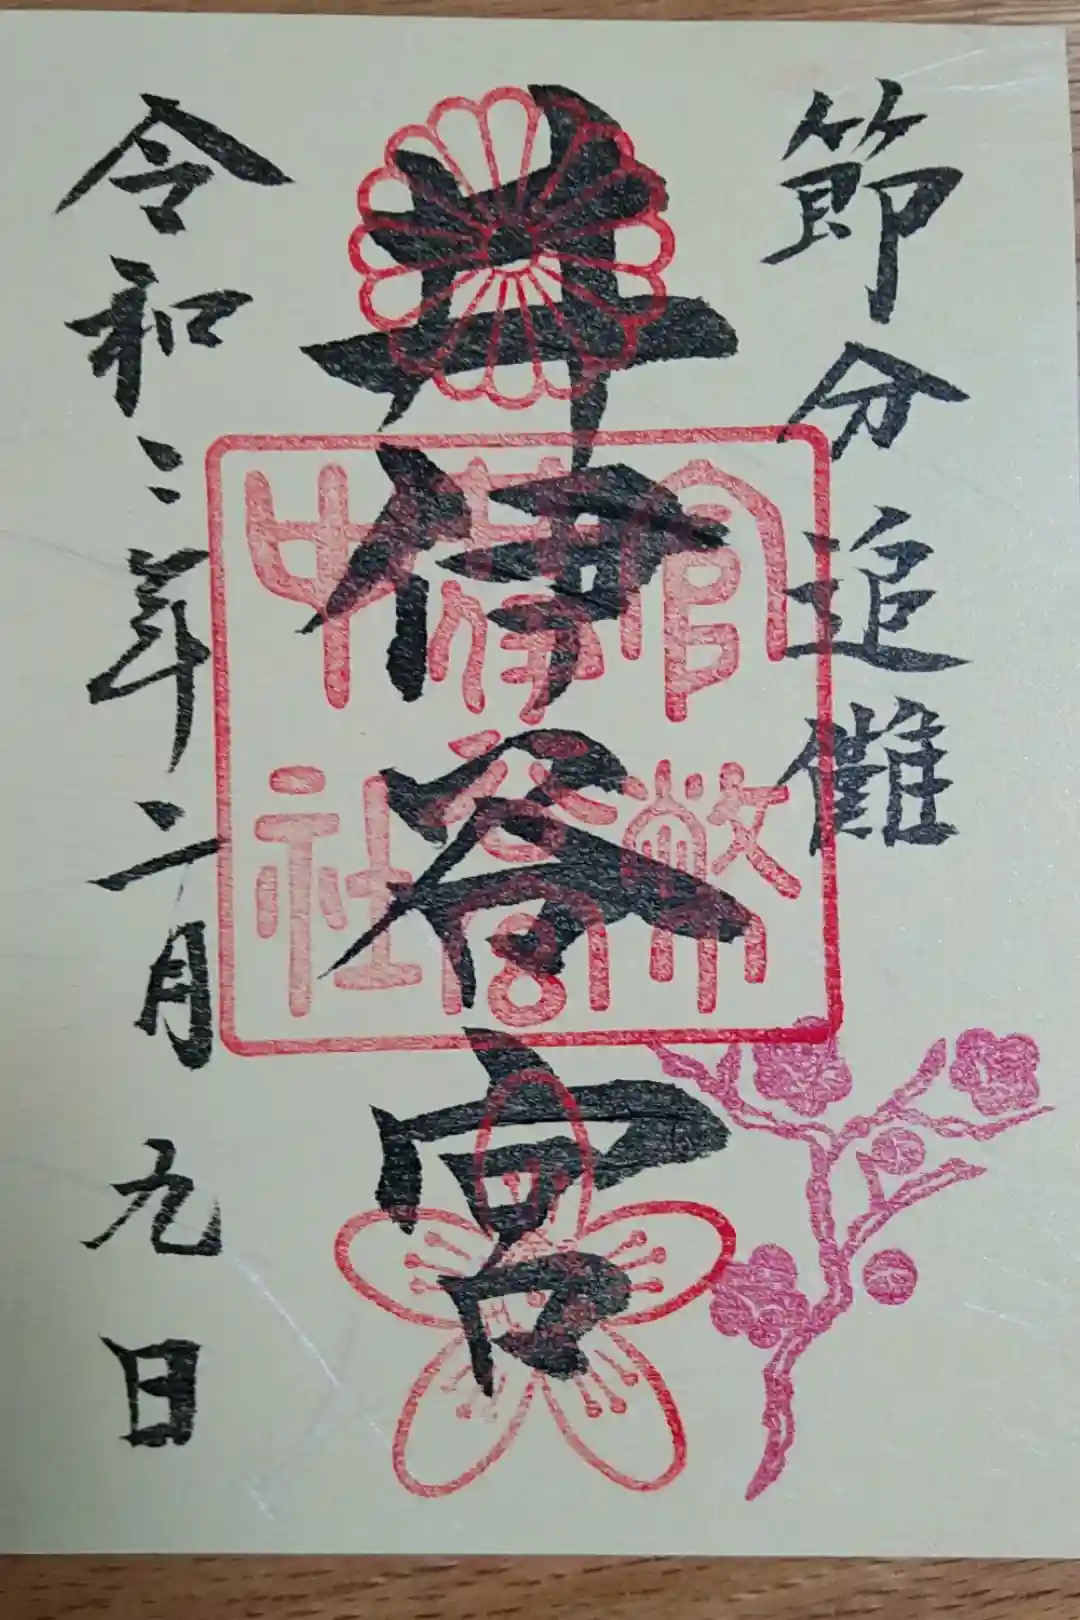 節分追儺
井伊谷宮
令和三年二月九日
官幣
井伊谷宮
中社